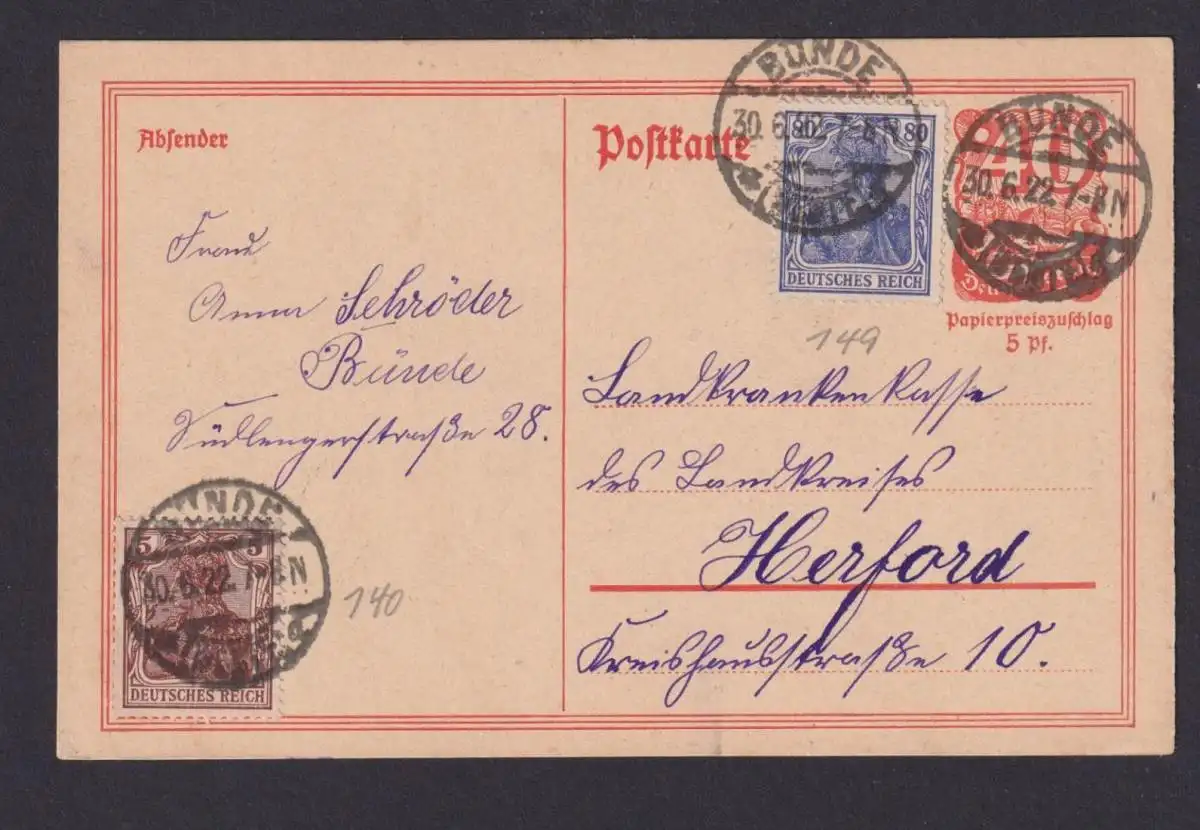 Absender
Frau
Anna Schröder
Bünde
Südlengerstraße 28.
5 5
DEUTSCHES REICH
BÜNDE
30.6.22. 7-8N
140
Postkarte
80 80
DEUTSCHES REICH
BÜNDE
30.6.22. 7-8N
149
40
BÜNDE
30.6.22. 7-8N
(WESTF.)
Papierpreiszuschlag
5 Pf.
Landkrankenkasse
des Landkreises
Herford
Kreishausstraße 10.